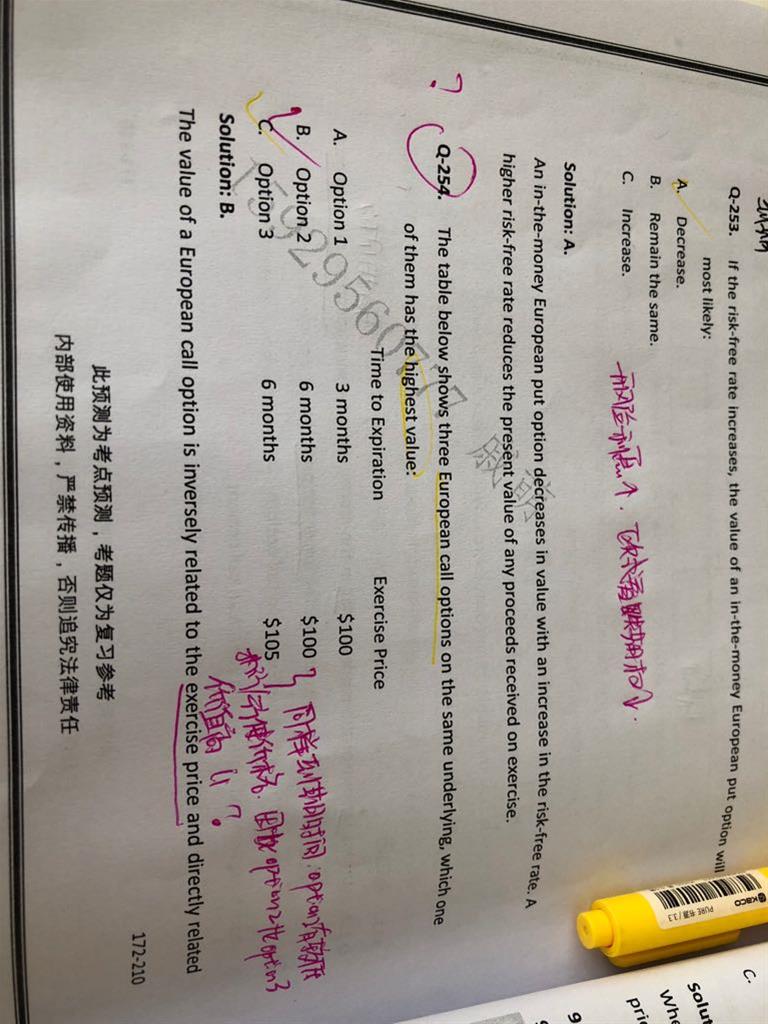 Q-253. If the risk-free rate increases, the value of an in-the-money European put option will
most likely:
A. Decrease.
B. Remain the same.
C. Increase.
Solution: A.
An in-the-money European put option decreases in value with an increase in the risk-free rate. A
higher risk-free rate reduces the present value of any proceeds received on exercise.
?
Q-254. The table below shows three European call options on the same underlying, which one
of them has the highest value:
Time to Expiration Exercise Price
A. Option 1 3 months $100
B. Option 2 6 months $100
C. Option 3 6 months $105
同样到期时间, option
因此 option2比option3
价值高 ?
Solution: B.
The value of a European call option is inversely related to the exercise price and directly related
此预测为考点预测，考题仅为复习参考
内部使用资料，严禁传播，否则追究法律责任
172-210
KACO
PURE 书源 / 3.3
C.
Solut
Whe
pric
9